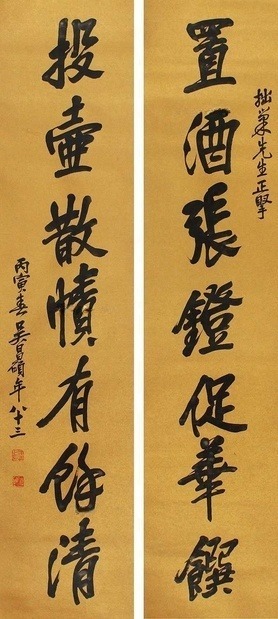 拙巢先生正擘
置酒張鐙促華饌
投壺散帙有餘清
丙寅春吳昌碩年八十三